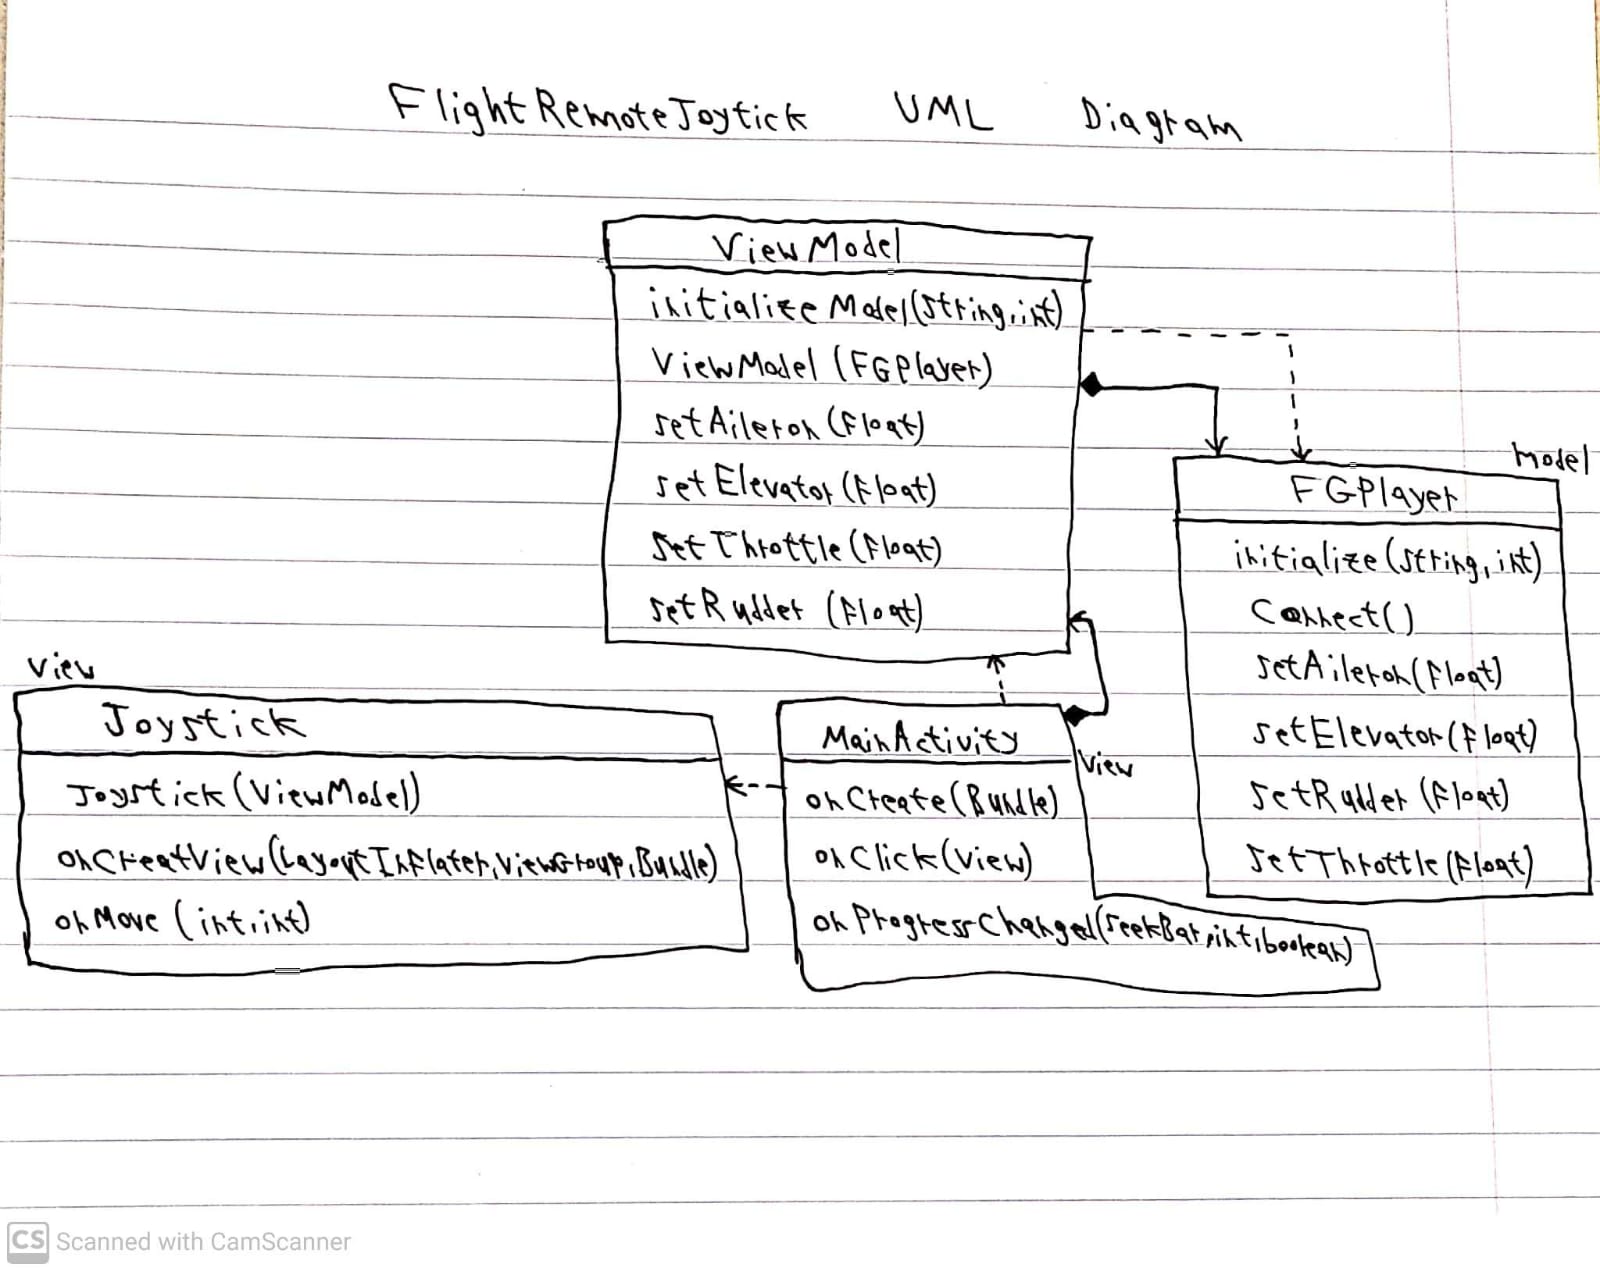 FlightRemoteJoytick UML Diagram
ViewModel
initializeModel(string,int)
ViewModel (FGPlayer)
setAileron (float)
setElevator (float)
setThrottle (float)
setRudder (float)
model
FGPlayer
initialize(string, int)
Connect()
setAileron (float)
setElevator (float)
setRudder (float)
setThrottle (float)
View
Joystick
Joystick (ViewModel)
onCreatView (LayoutInflater, ViewGroup, Bundle)
onMove (int,int)
MainActivity
View
onCreate (Bundle)
onClick (View)
onProgressChanged(seekBar,int,boolean)
CS Scanned with CamScanner